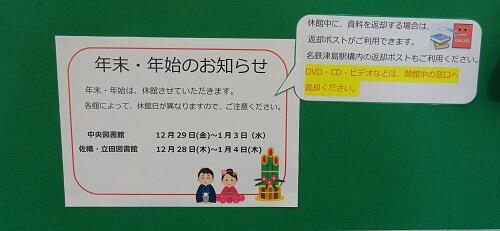 年末・年始のお知らせ
年末・年始は、休館させていただきます。
各館によって、休館日が異なりますので、ご注意ください。
中央図書館 12月29日(金)～1月3日(水)
佐織・立田図書館 12月28日(木)～1月4日(木)
休館中に、資料を返却する場合は、
返却ポストがご利用できます。
名鉄津島駅構内の返却ポストもご利用ください。
DVD・CD・ビデオなどは、開館中の窓口へ
返却ください。